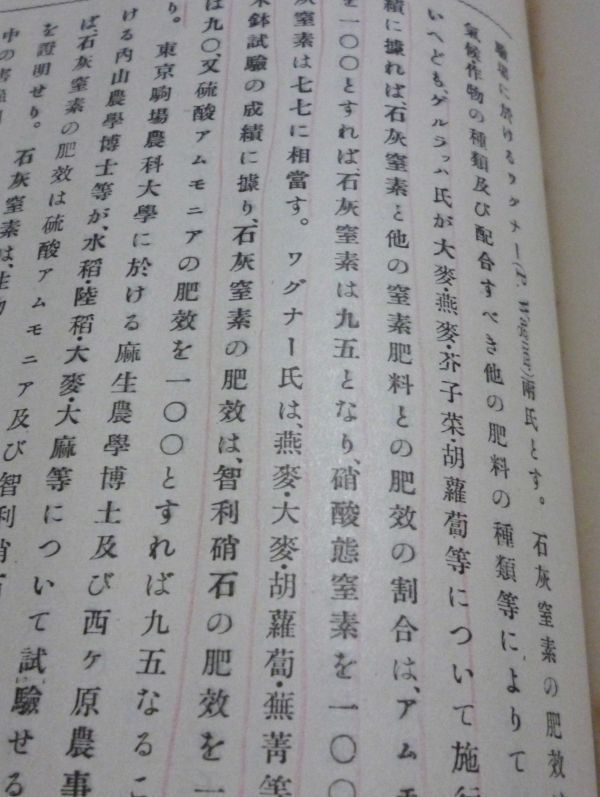 驗場に於けるワグナー 兩氏とす。 石灰窒素の肥效
氣候作物の種類及び配合すべき他の肥料の種類等によりて
いへども、ゲルラッハ氏が大麥・燕麥・芥子菜・胡蘿蔔等について施行
績に據れば、石灰窒素と他の窒素肥料との肥效の割合は、アムモ
を一〇〇とすれば、石灰窒素は九五となり、硝酸態窒素を一〇〇
灰窒素は七七に相當す。 ワグナー氏は、燕麥・大麥・胡蘿蔔・蕪菁等
鉢試驗の成績に據り、石灰窒素の肥效は、智利硝石の肥效を一
は九〇、又硫酸アムモニアの肥效を一〇〇とすれば九五なるこ
り。 東京駒場農科大學に於ける麻生農學博士及び西ヶ原農事
ける內山農學博士等が、水稻・陸稻・大麥・大麻等について試驗せる
ば石灰窒素の肥效は硫酸アムモニア及び智利硝石
を證明せり。 石灰窒素は、
中の